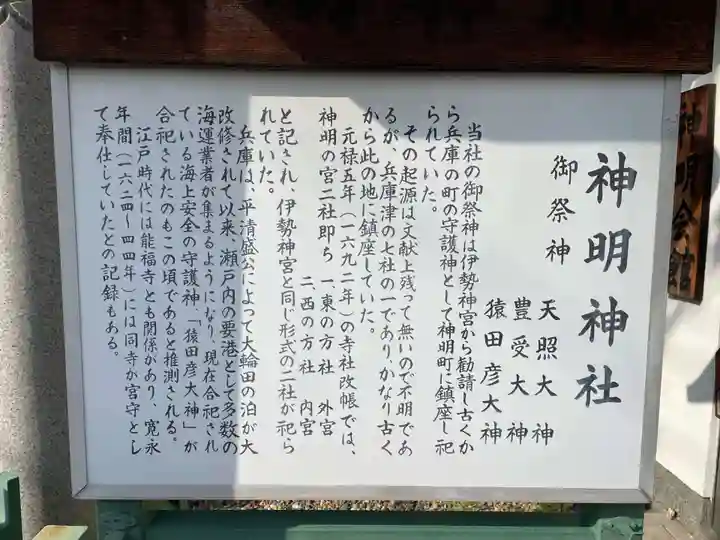 神明神社
御祭神
天照大神
豊受大神
猿田彦大神
当社の御祭神は伊勢神宮から勧請し古くか
ら兵庫の町の守護神として神明町に鎮座し祀
られていた。
その起源は文献上残って無いので不明であ
るが、兵庫津の七社の一であり、かなり古く
から此の地に鎮座していた。
元禄五年(一六九二年)の寺社改帳では、
神明の宮二社即ち 一、東の方社 外宮
二、西の方社 内宮
と記され、伊勢神宮と同じ形式の二社が祀ら
れていた。
兵庫は、平清盛公によって大輪田の泊が大
改修されて以来、瀬戸内の要港として多数の
海運業者が集まるようになり、現在合祀され
ている海上安全の守護神「猿田彦大神」が
合祀されたのもこの頃であると推測される。
江戸時代には能福寺とも関係があり、寛永
年間(一六二四~四四年)には同寺が宮守とし
て奉仕していたとの記録もある。
神明会館